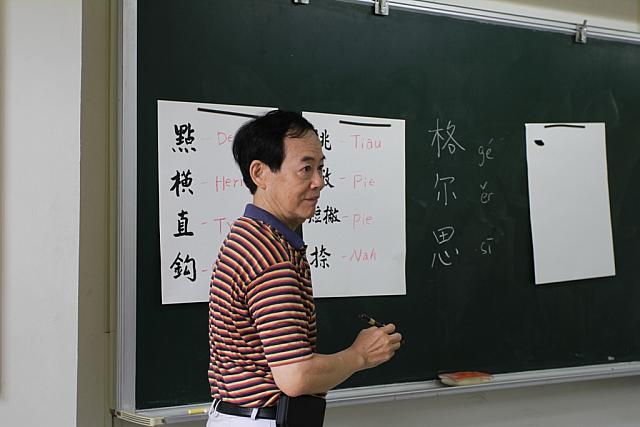 點 -
橫 -
直 -
鈎 -
- Tiau
- Pie
撇 - pie
捺 - Nah
格 gé
尔 ěr
思 sī